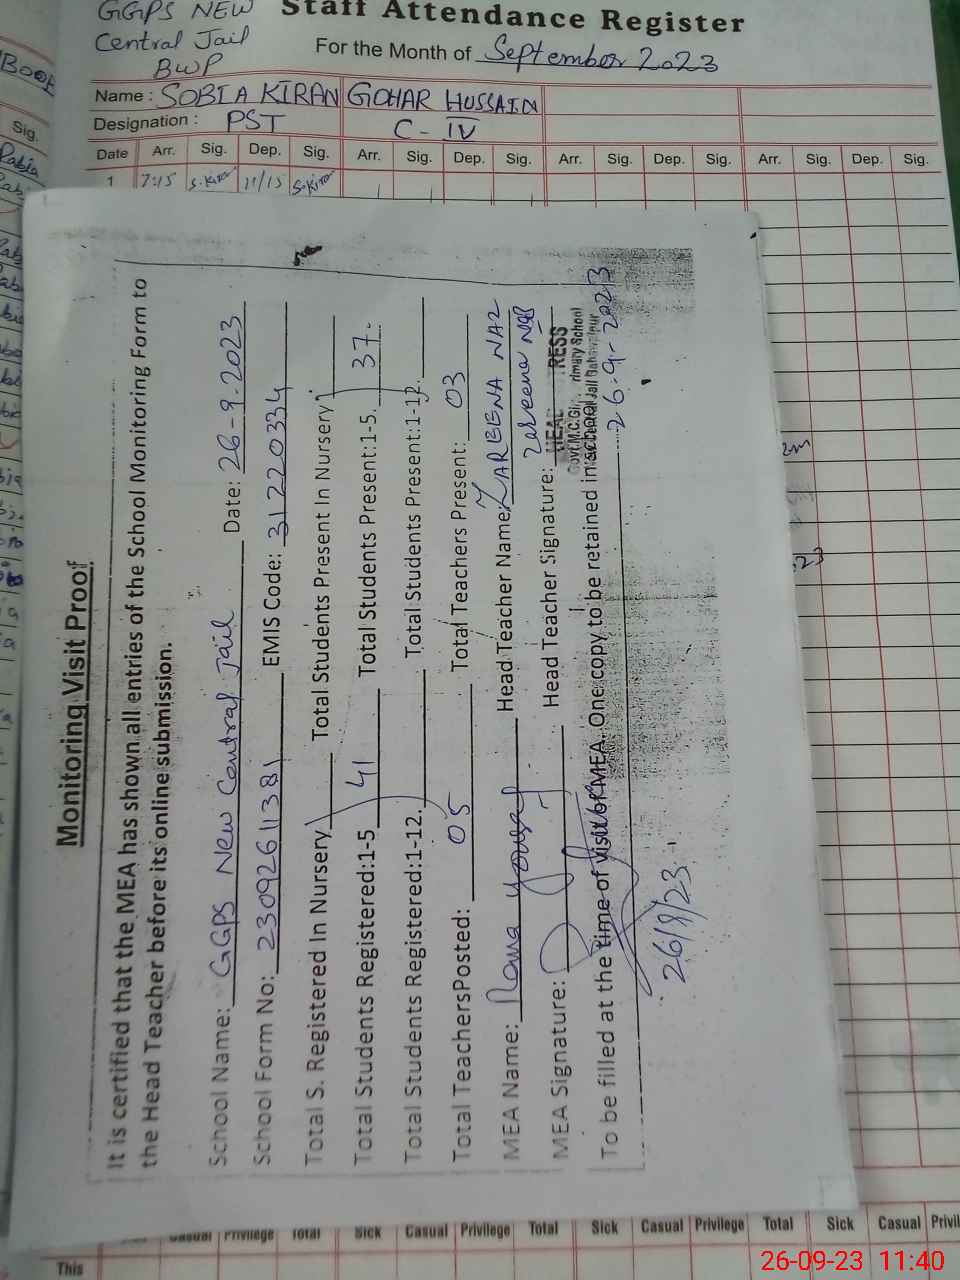 GGPS NEW
Central Jail
BWP
Staff Attendance Register
For the Month of September 2023
Name : SOBIA KIRAN GOHAR HUSSAIN
Designation : PST C - IV
Date Arr. Sig. Dep. Sig. Arr. Sig. Dep. Sig. Arr. Sig. Dep. Sig. Arr. Sig. Dep. Sig.
1 7:15 S.Kiran 11/15 S.Kiran
Book
Sig.
Rabia
Monitoring Visit Proof
It is certified that the MEA has shown all entries of the School Monitoring Form to
the Head Teacher before its online submission.
School Name: GGPS New Central Jail Date: 26-9-2023
School Form No: 2309261381 EMIS Code: 31220334
Total S. Registered In Nursery Total Students Present In Nursery
Total Students Registered:1-5 41 Total Students Present:1-5. 37.
Total Students Registered:1-12. Total Students Present:1-12.
Total TeachersPosted: 05 Total Teachers Present: 03
MEA Name: Rana Yousaf Head Teacher Name: ZAREENA NAZ
MEA Signature: Head Teacher Signature: Zareena Naz
To be filled at the time of visit of MEA. One copy to be retained in school
26-9-2023
26/8/23
Casual Privilege Total Sick Casual Privilege Total Sick Casual Privilege Total Sick Casual
This
26-09-23 11:40